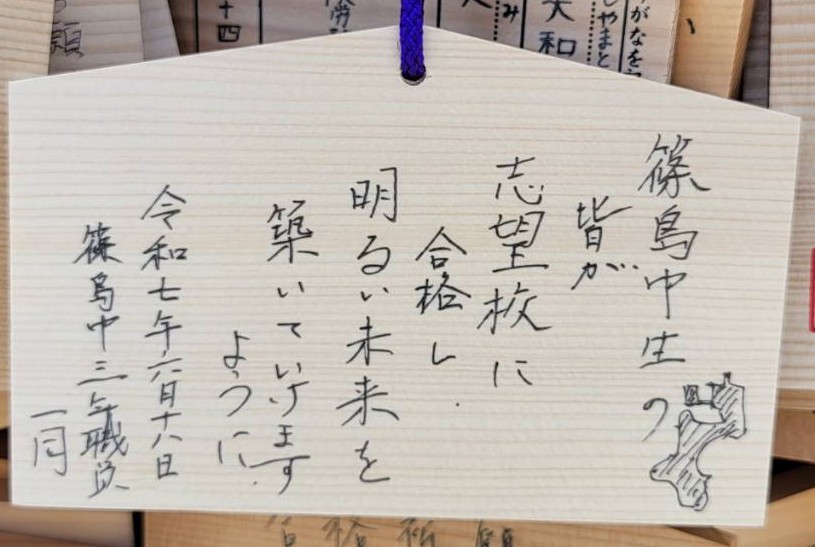 篠島中生の
皆が
志望校に
合格し
明るい未来を
築いていけます
ように
令和七年六月十八日
篠島中三年職員
一同
合格祈願
願
十四
大和
しやまと
がなを
み